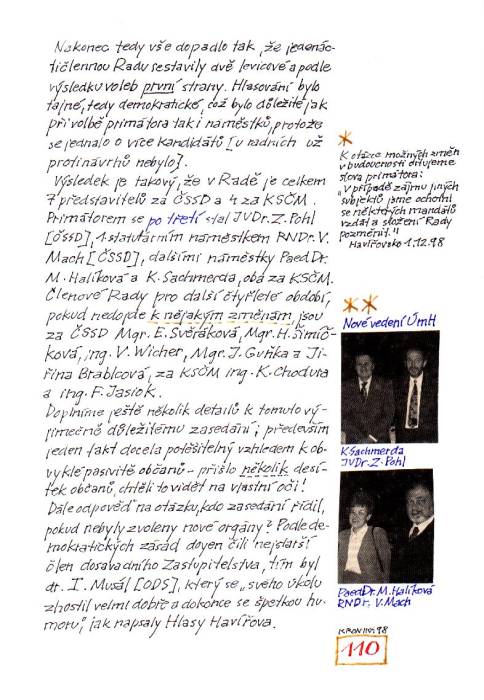 Nakonec tedy vše dopadlo tak, že jedenác-
tičlennou Radu sestavily dvě levicové a podle
výsledku voleb první strany. Hlasování bylo
tajné, tedy demokratické, což bylo důležité jak
při volbě primátora tak i náměstků, protože
se jednalo o více kandidátů [u radních už
protinávrhů nebylo].
Výsledek je takový, že v Radě je celkem
7 představitelů za ČSSD a 4 za KSČM.
Primátorem se po třetí stal JUDr. Z. Pohl
[ČSSD], 1. statutárním náměstkem RNDr. V.
Mach [ČSSD], dalšími náměstky PaedDr.
M. Halíková a K. Sachmerda, oba za KSČM.
Členové Rady pro další čtyřleté období,
pokud nedojde k nějakým změnám, jsou
za ČSSD Mgr. E. Svěráková, Mgr. H. Šimíč-
ková, ing. V. Wicher, Mgr. J. Guňka a Ji-
řina Brablcová, za KSČM ing. K. Chodura
a ing. F. Jasiok.
Doplníme ještě několik detailů k tomuto vý-
jimečně důležitému zasedání; především
jeden fakt docela potěšitelný vzhledem k ob-
vyklé pasivitě občanů - přišlo několik desí-
tek občanů, chtěli to vidět na vlastní oči!
Dále odpověď na otázku, kdo zasedání řídil,
pokud nebyly zvoleny nové orgány? Podle de-
mokratických zásad doyen čili nejstarší
člen dosavadního Zastupitelstva, tím byl
dr. I. Musál [ODS], který se „svého úkolu
zhostil velmi dobře a dokonce se špetkou hu-
moru", jak napsaly Hlasy Havířova.
*
K otázce možných změn
v budoucnosti citujeme
slova primátora:
„V případě zájmu jiných
subjektů jsme ochotni
se některých mandátů
vzdát a složení Rady
pozměnit."
Havířovsko 1.12.98
**
Nové vedení ÚmH
K Sachmerda
JUDr. Z. Pohl
PaedDr. M. Halíková
RNDr. V. Mach
98
110